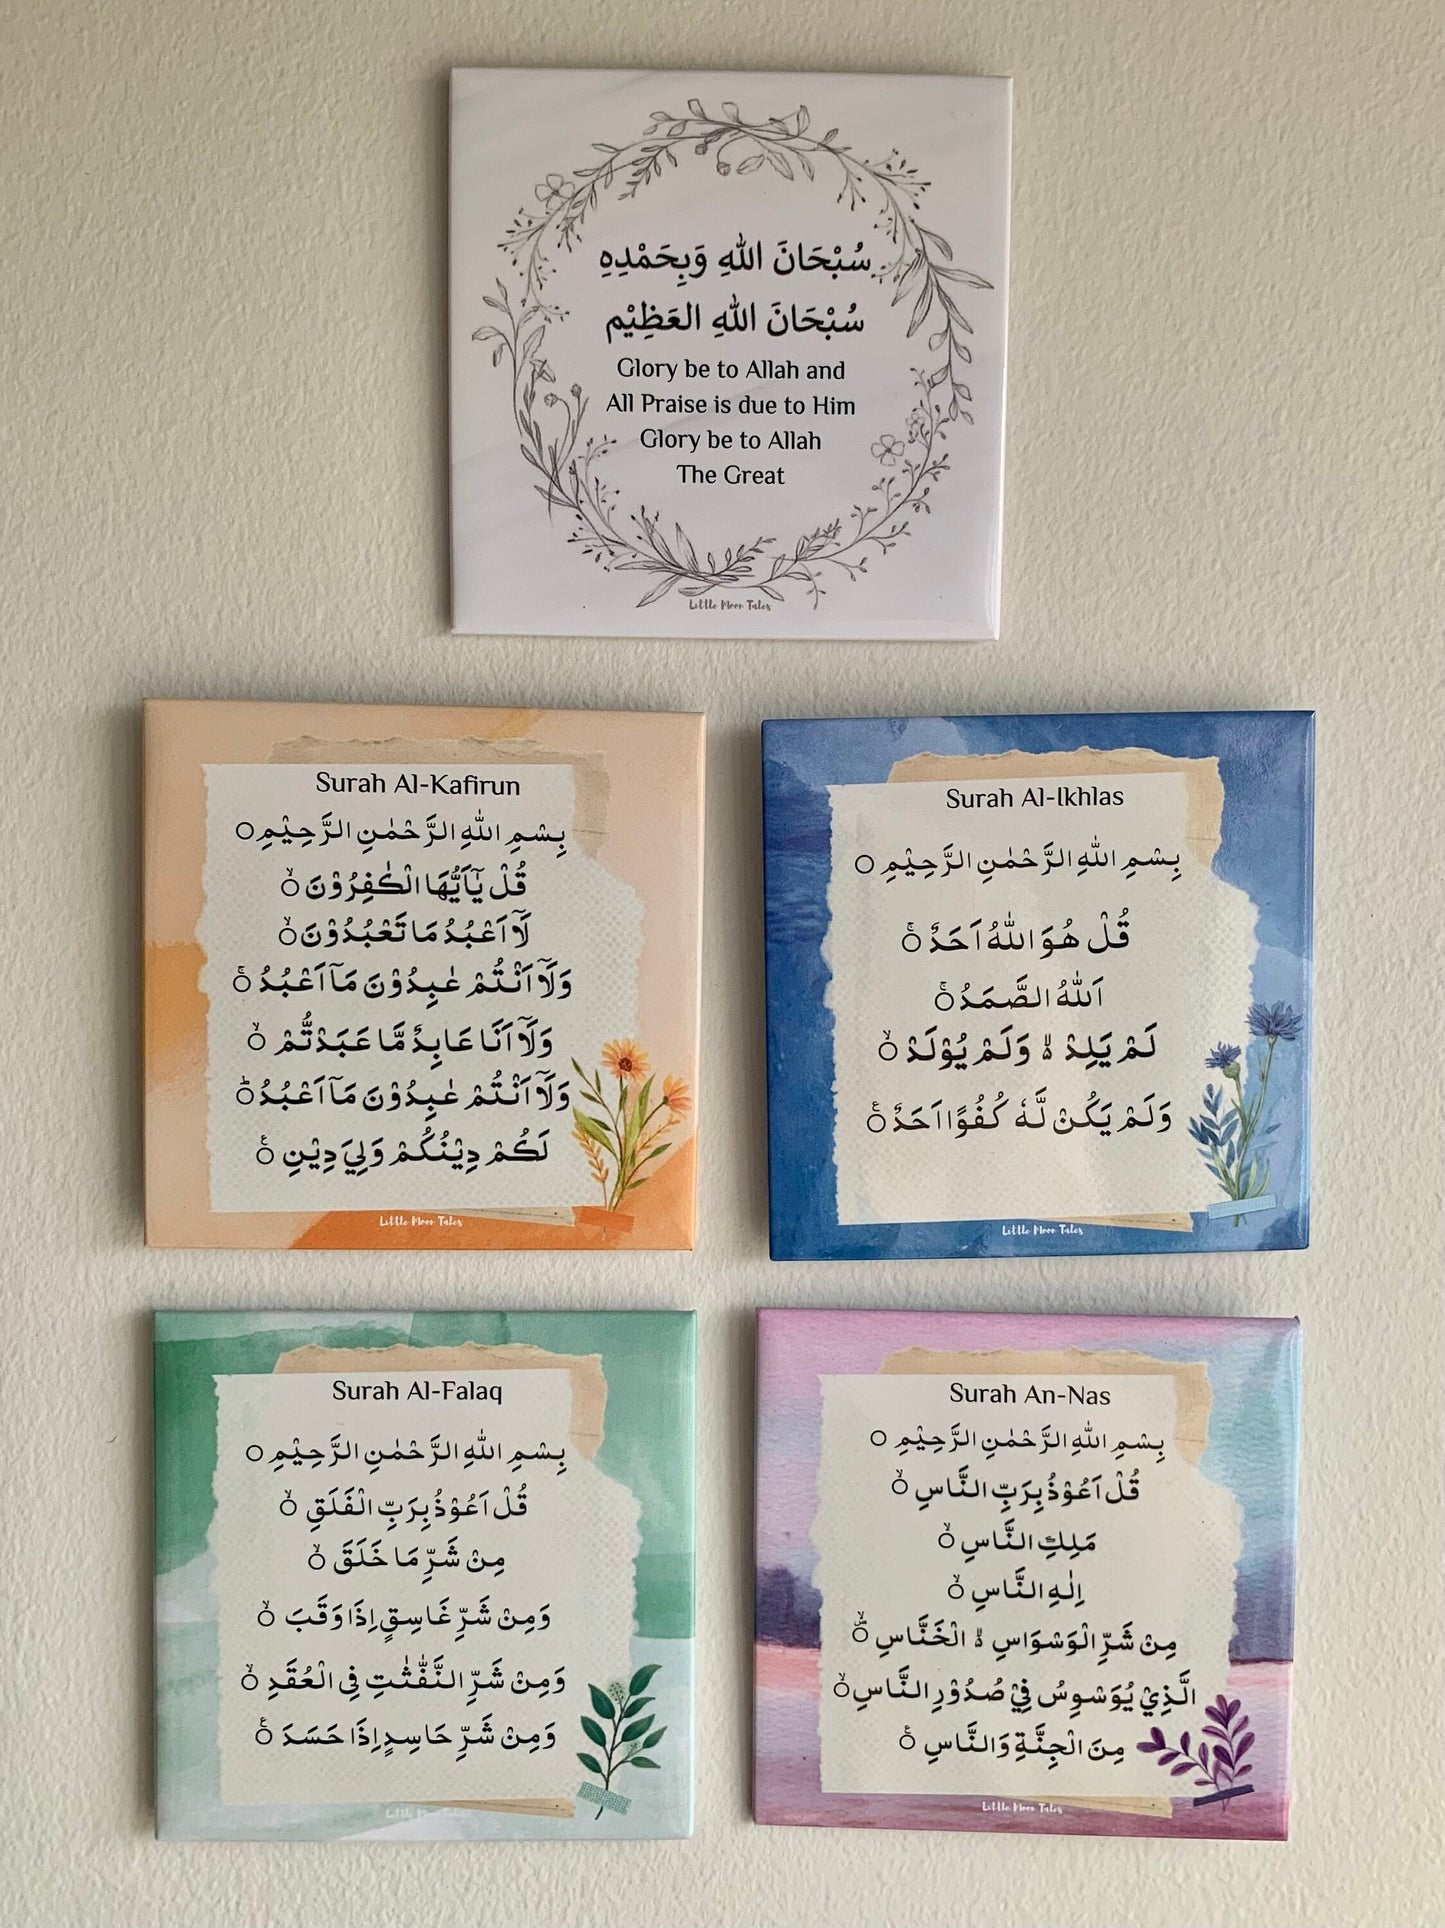 سُبْحَانَ اللهِ وَبِحَمْدِهِ
سُبْحَانَ اللهِ العَظِيْم
Glory be to Allah and
All Praise is due to Him
Glory be to Allah
The Great
Little Moon Tales
Surah Al-Kafirun
بِسْمِ اللّٰهِ الرَّحْمٰنِ الرَّحِيْمِ ○
قُلْ يٰٓاَيُّهَا الْكٰفِرُوْنَ ۙ○
لَآ اَعْبُدُ مَا تَعْبُدُوْنَ ۙ○
وَلَآ اَنْتُمْ عٰبِدُوْنَ مَآ اَعْبُدُ ۚ○
وَلَآ اَنَا عَابِدٌ مَّا عَبَدْتُّمْ ۙ○
وَلَآ اَنْتُمْ عٰبِدُوْنَ مَآ اَعْبُدُ ؕ○
لَكُمْ دِيْنُكُمْ وَلِيَ دِيْنِ ○ۧ
Little Moon Tales
Surah Al-Ikhlas
بِسْمِ اللّٰهِ الرَّحْمٰنِ الرَّحِيْمِ ○
قُلْ هُوَ اللّٰهُ اَحَدٌ ۚ○
اَللّٰهُ الصَّمَدُ ۚ○
لَمْ يَلِدْ ۙ۬ وَلَمْ يُوْلَدْ ۙ○
وَلَمْ يَكُنْ لَّهٗ كُفُوًا اَحَدٌ ○ۧ
Little Moon Tales
Surah Al-Falaq
بِسْمِ اللّٰهِ الرَّحْمٰنِ الرَّحِيْمِ ○
قُلْ اَعُوْذُ بِرَبِّ الْفَلَقِ ۙ○
مِنْ شَرِّ مَا خَلَقَ ۙ○
وَمِنْ شَرِّ غَاسِقٍ اِذَا وَقَبَ ۙ○
وَمِنْ شَرِّ النَّفّٰثٰتِ فِى الْعُقَدِ ۙ○
وَمِنْ شَرِّ حَاسِدٍ اِذَا حَسَدَ ○ۧ
Little Moon Tales
Surah An-Nas
بِسْمِ اللّٰهِ الرَّحْمٰنِ الرَّحِيْمِ ○
قُلْ اَعُوْذُ بِرَبِّ النَّاسِ ۙ○
مَلِكِ النَّاسِ ۙ○
اِلٰهِ النَّاسِ ۙ○
مِنْ شَرِّ الْوَسْوَاسِ ۙ۬ الْخَنَّاسِ ۙ○
الَّذِيْ يُوَسْوِسُ فِيْ صُدُوْرِ النَّاسِ ۙ○
مِنَ الْجِنَّةِ وَالنَّاسِ ○ۧ
Little Moon Tales